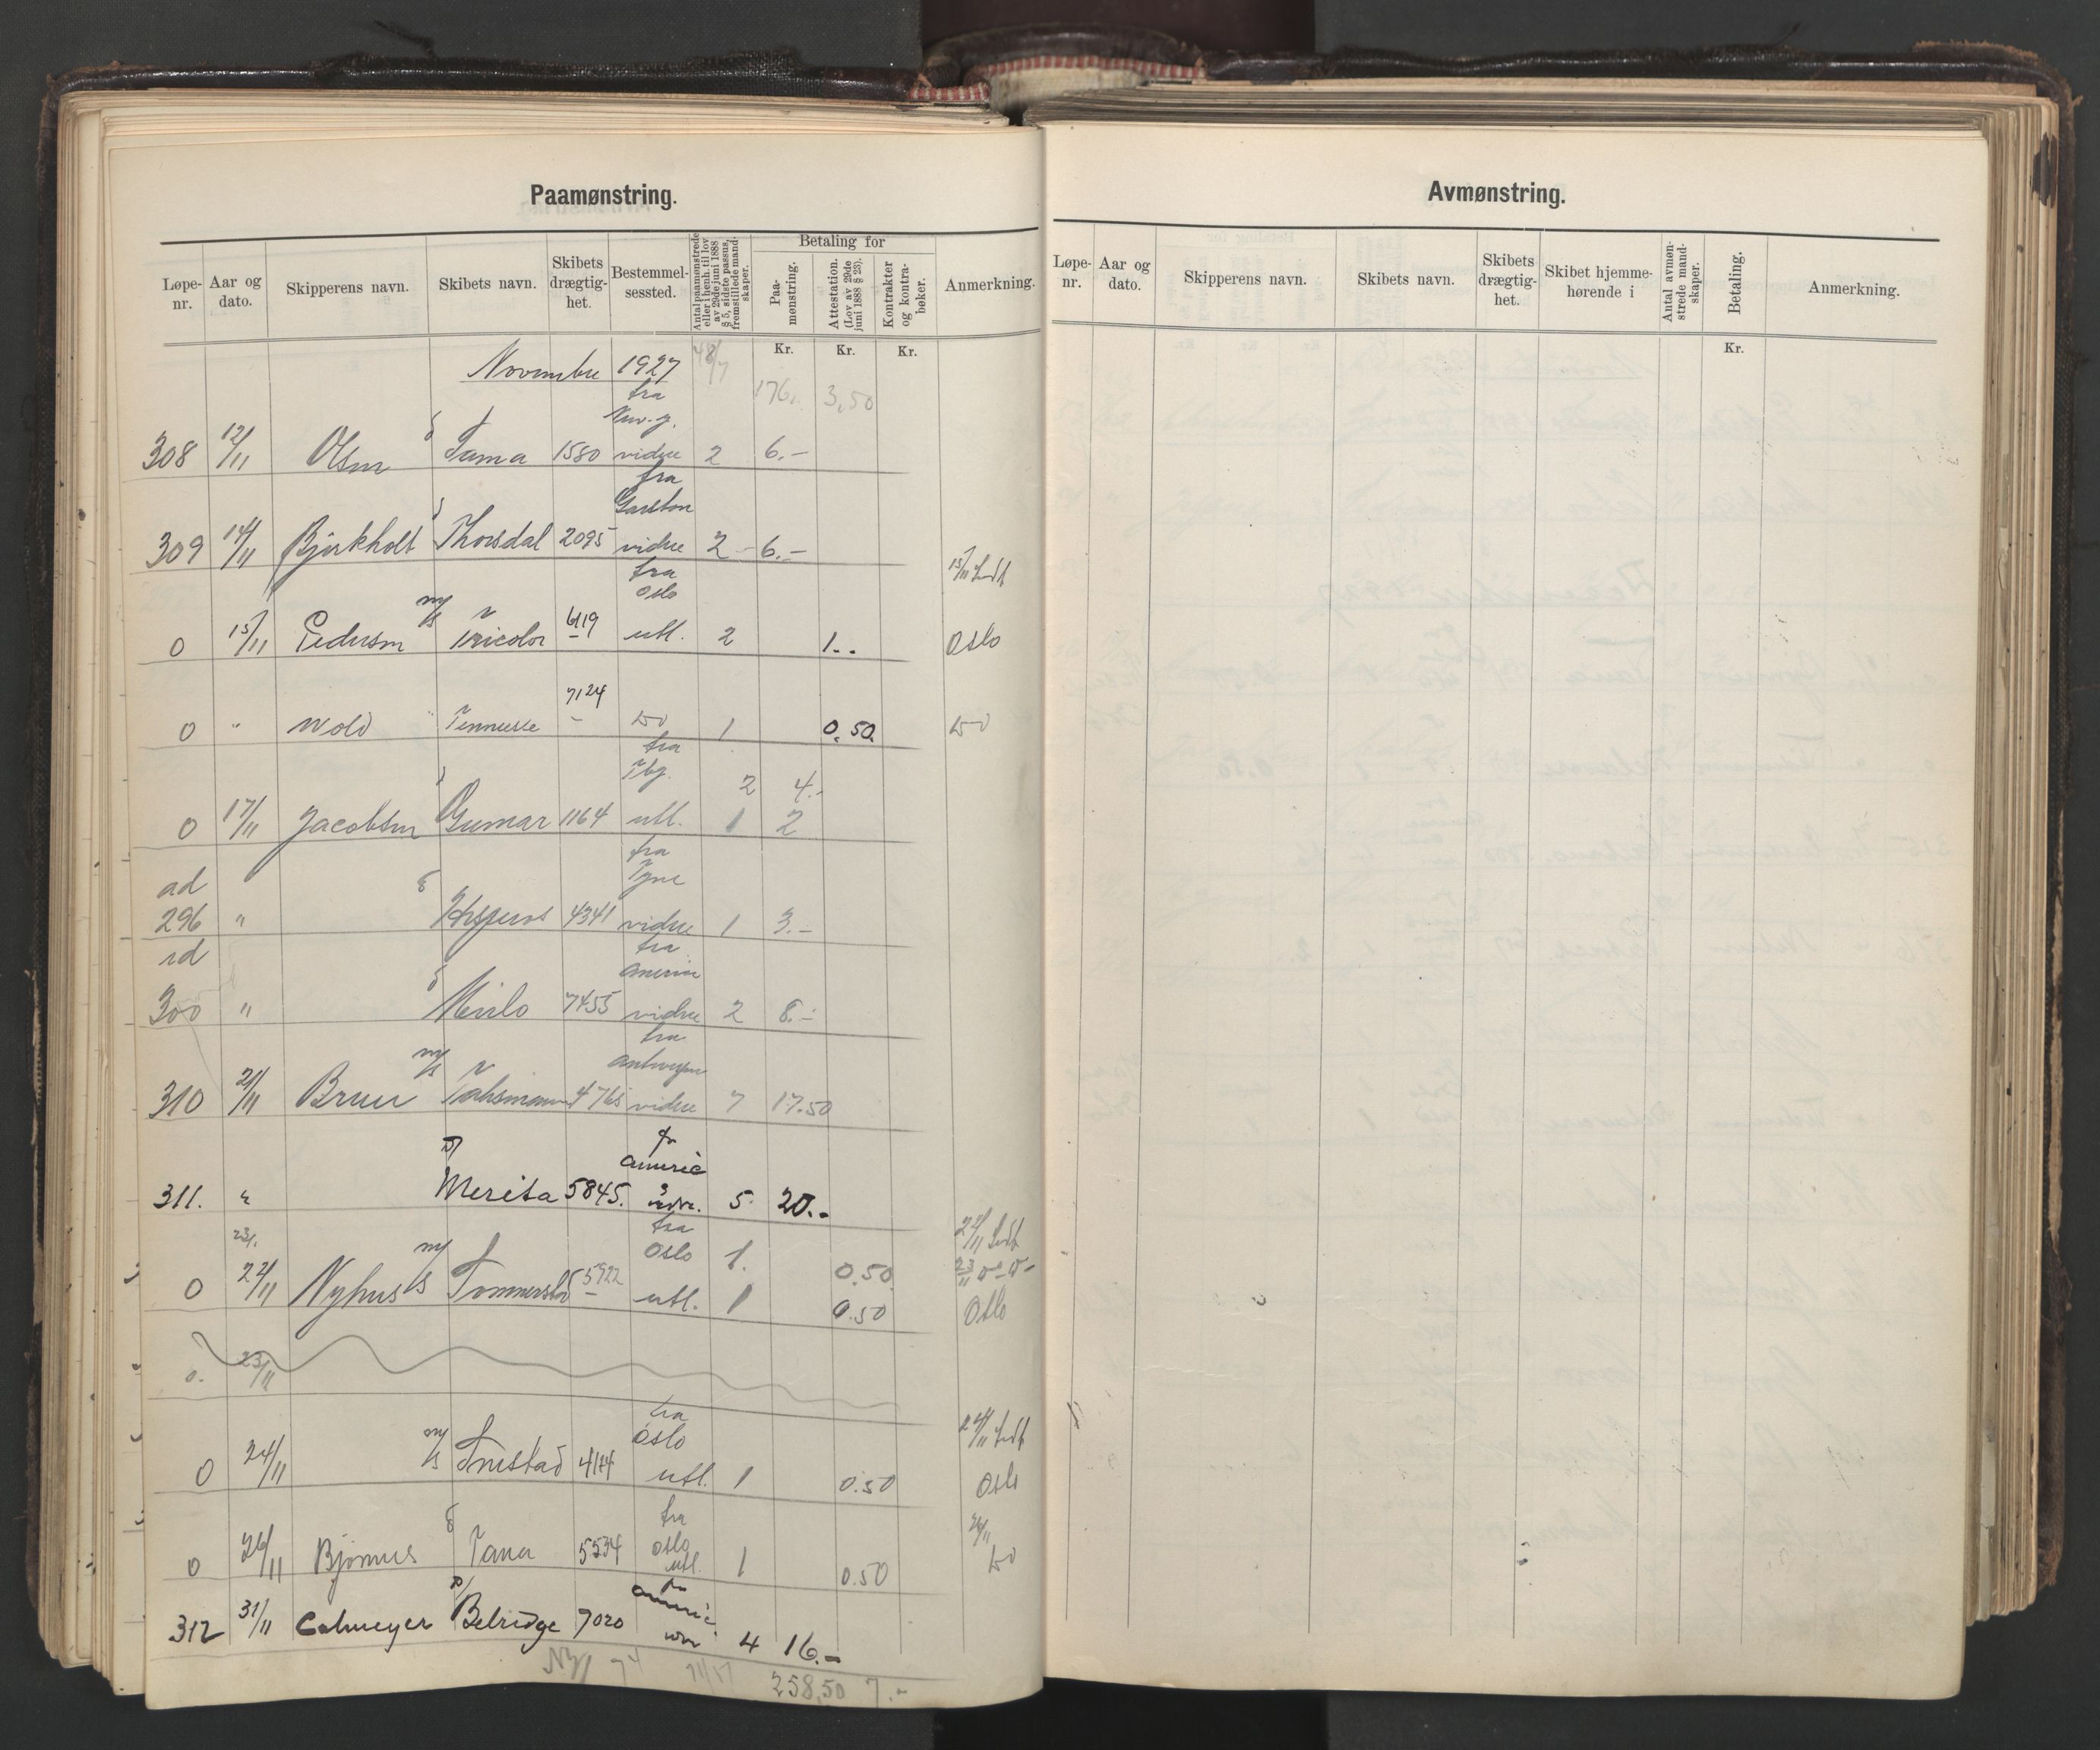 Paamønstring.
Løpe-nr. Aar og dato. Skipperens navn. Skibets navn. Skibets drægtig-het. Bestemmel-sessted. Antal paamønstrede eller i henh. til lov av 29de juni 1888 § 5, sidste passus, fremstillede mand-skaper. Betaling for Paa-mønstring. Attestation. (Lov av 29de juni 1888 § 23). Kontrakter og kontra-bøker. Anmerkning.
Kr. Kr. Kr.
November 1927 48/7
176,. 3,50
fra
308 12/11 Olsen Tama 1580 vidre 2 6.-
fra
309 14/11 Bjerkholt Thorsdal 2095 vidre 2 - 6.-
fra
Oslo
15/11
0 15/11 Pedersen m/s Tricolor 6119 utl. 2 1.. Oslo
0 " Wold " Tennessee 7124 - do 1 0.50. do
fra
Tbg.
2 4.-
0 17/11 Jacobsen Gumar 1164 utl. 1 2
fra
Tyne
ad
296 " 4341 vidre 1 3.-
fra
ad
300 " Mirlo 7455 vidre 2 8.-
fra
Antwerpen
310 21/11 Bruun m/s Talisman 4765 vidre 7 17.50
311. " Merita 5845. 5 20.-
fra
23/. Oslo 1. 0.50
22/11
23/11
0 22/11 Nyhus m/s 5922 - utl. 1 0.50 Oslo
0. 23/11
fra
Oslo
24/11
0 24/11 m/s 4114 utl. 1 0.50 Oslo
fra
Oslo
26/11
0 26/11 Bjønnes Tana 5534 utl. 1 0.50 do
312 31/11 Calmeyer Belridge 7020 4 16.-
74 258,50 7.-
Avmønstring.
Løpe-nr. Aar og dato. Skipperens navn. Skibets navn. Skibets drægtig-het. Skibet hjemme-hørende i Antal avmøn-strede mand-skaper. Betaling. Anmerkning.
Kr.